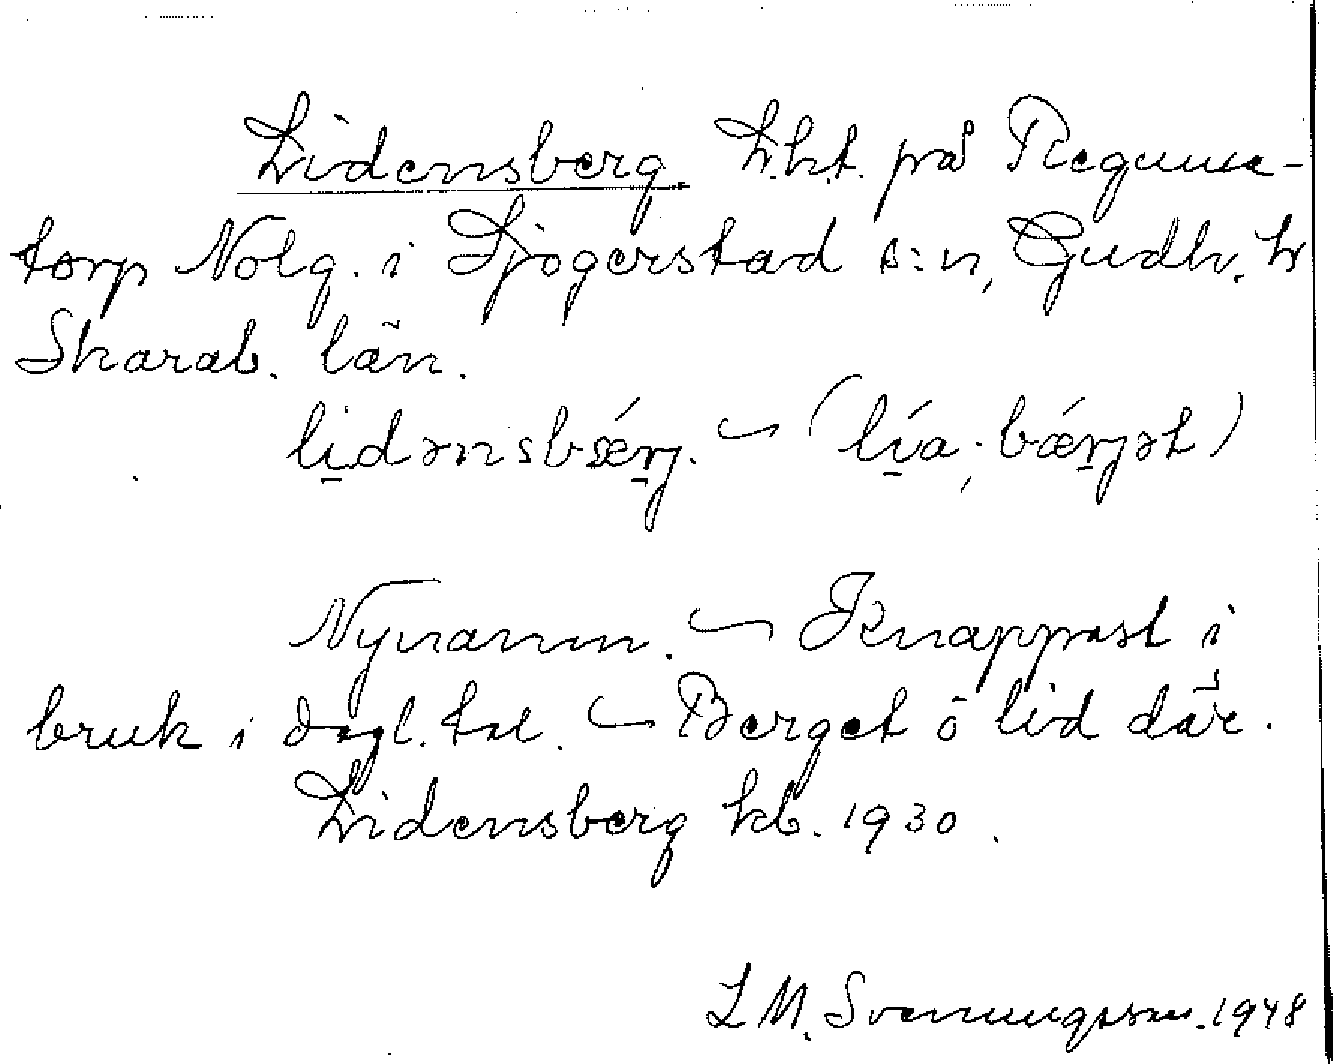 Lidensberg Lht. på Regume-
torp Nolg. i Sjogerstad s:n, Gudh. h
Skarab. län.
lidənsbǽrj. ~ (lía; bǽrjət)
Nynamn. ~ Knappast i
bruk i dagl. tal. ~ Berget ö lid där.
Lidensberg kb. 1930.
L M. Svenungsson. 1948